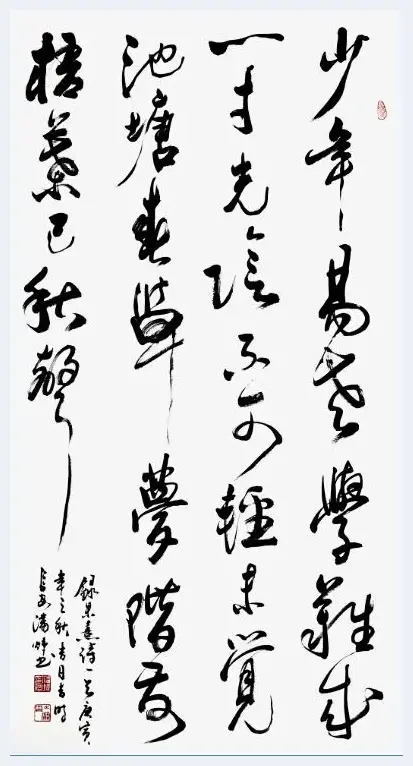 少年易老學難成
一寸光陰不可輕未覺
池塘春草夢階前
梧葉已秋聲
錄朱熹詩一首庚寅
年之秋吉月吉時